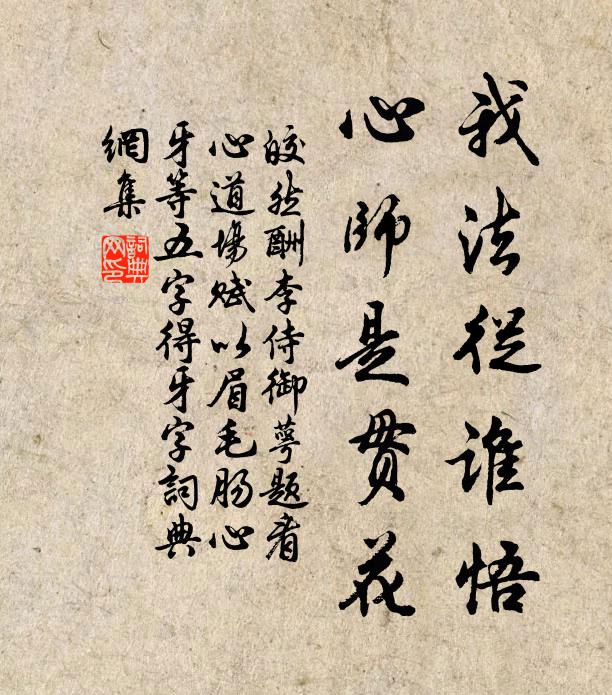 我法從誰悟
心師是貫花
皎然酬李侍御萼題看
心道場賦以眉毛腸心
牙等五字得牙字詞典
網集
詞典
网印